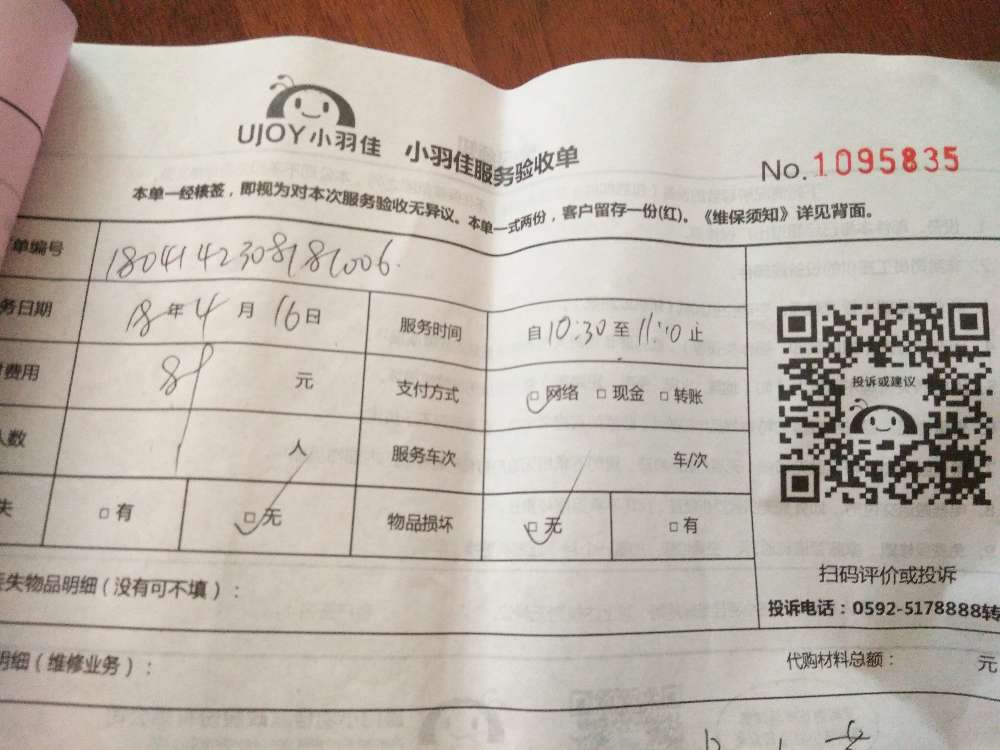 UJOY小羽佳 小羽佳服务验收单 No.1095835
本单一经核签，即视为对本次服务验收无异议。本单一式两份，客户留存一份(红)。《维保须知》详见背面。
单编号
务日期 18年4月16日 服务时间 自10:30至11:10止
费用 元 支付方式 □网络 □现金 □转账
人数 1人 服务车次 车/次
失 □有 □无 物品损坏 □无 □有
投诉或建议
扫码评价或投诉
投诉电话：0592-5178888转
丢失物品明细（没有可不填）：
明细（维修业务）： 代购材料总额： 元